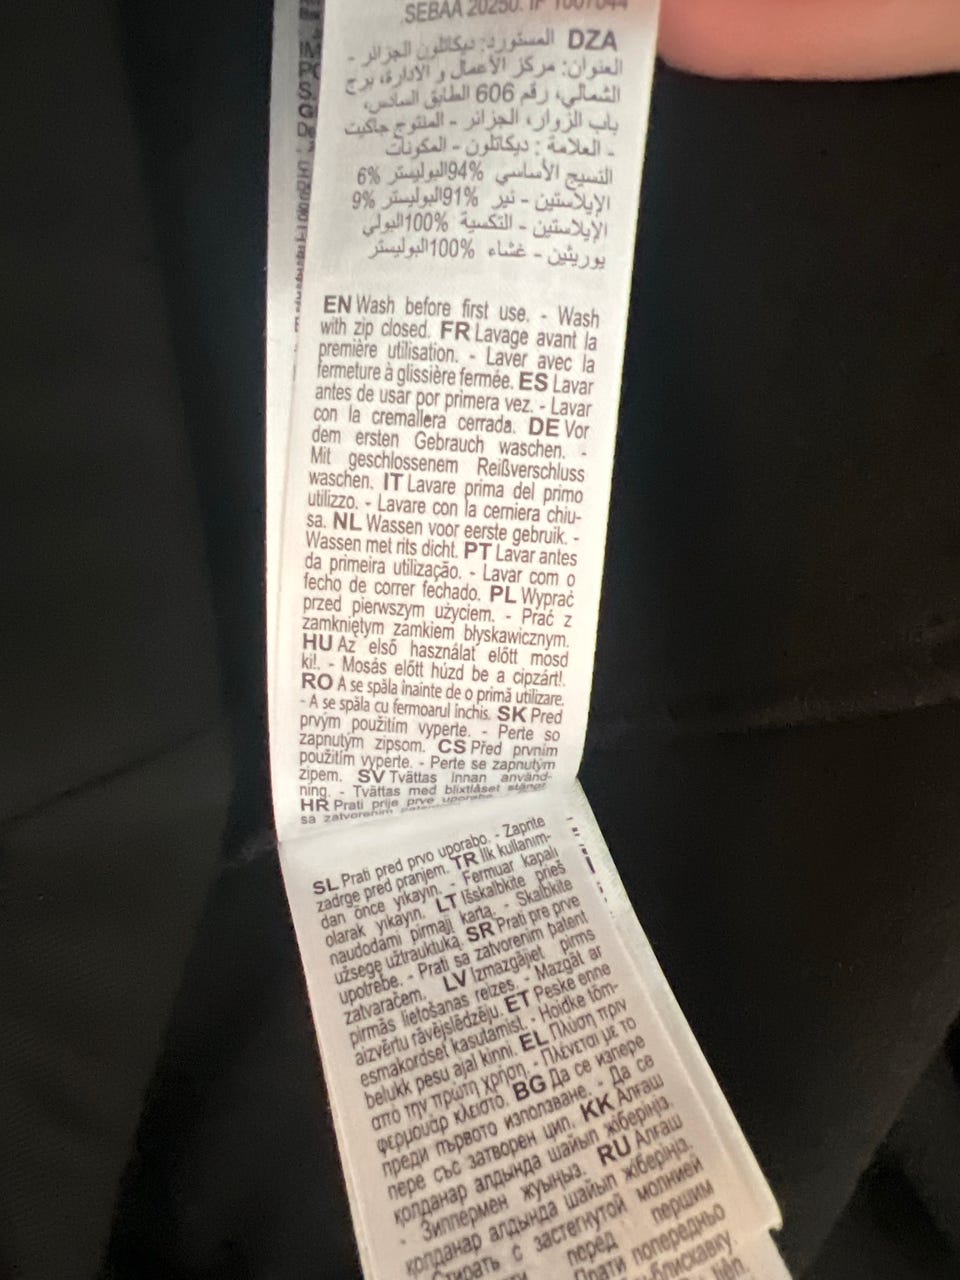 SEBAA 20250. IF 1007044
DZA المستورد: ديكاتلون الجزائر -
العنوان: مركز الأعمال و الادارة، برج
الشمالي، رقم 606 الطابق السادس،
باب الزوار، الجزائر - المنتوج جاكيت
- العلامة : ديكاتلون - المكونات
النسيج الأساسي %94البوليستر %6
الإيلاستين - نير %91البوليستر %9
الإيلاستين - التكسية %100البولي
يوريثين - غشاء %100البوليستر
EN Wash before first use. - Wash
with zip closed. FR Lavage avant la
première utilisation. - Laver avec la
fermeture à glissière fermée. ES Lavar
antes de usar por primera vez. - Lavar
con la cremallera cerrada. DE Vor
dem ersten Gebrauch waschen. -
Mit geschlossenem Reißverschluss
waschen. IT Lavare prima del primo
utilizzo. - Lavare con la cerniera chiu-
sa. NL Wassen voor eerste gebruik. -
Wassen met rits dicht. PT Lavar antes
da primeira utilização. - Lavar com o
fecho de correr fechado. PL Wyprać
przed pierwszym użyciem. - Prać z
zamkniętym zamkiem błyskawicznym.
HU Az első használat előtt mosd
ki!. - Mosás előtt húzd be a cipzárt!.
RO A se spăla înainte de o primă utilizare.
- A se spăla cu fermoarul închis. SK Pred
prvým použitím vyperte. - Perte so
zapnutým zipsom. CS Před prvním
použitím vyperte. - Perte se zapnutým
zipem. SV Tvättas innan använd-
ning. - Tvättas med blixtlåset stängt
HR Prati prije prve uporabe
sa zatvorenim
SL Prati pred prvo uporabo. - Zaprite
zadrge pred pranjem. TR İlk kullanım-
dan önce yıkayın. - Fermuar kapalı
olarak yıkayın. LT Išskalbkite prieš
naudodami pirmąjį kartą. - Skalbkite
užsegę užtrauktuką. SR Prati pre prve
upotrebe. - Prati sa zatvorenim patent
zatvaračem. LV Izmazgājiet pirms
pirmās lietošanas reizes. - Mazgāt ar
aizvērtu rāvējslēdzēju. ET Peske enne
esmakordset kasutamist. - Hoidke tõm-
belukk pesu ajal kinni. EL Πλύση πριν
από την πρώτη χρήση. - Πλένεται με το
φερμουάρ κλειστό. BG Да се изпере
преди първото използване. - Да се
пере със затворен цип. KK Алғаш
қолданар алдында шайып жіберіңіз.
- Зиппермен жуыңыз. RU Алғаш
қолданар алдында шайып жіберіңіз.
Стирать с застегнутой молнией
перед первым
Прати попередньо